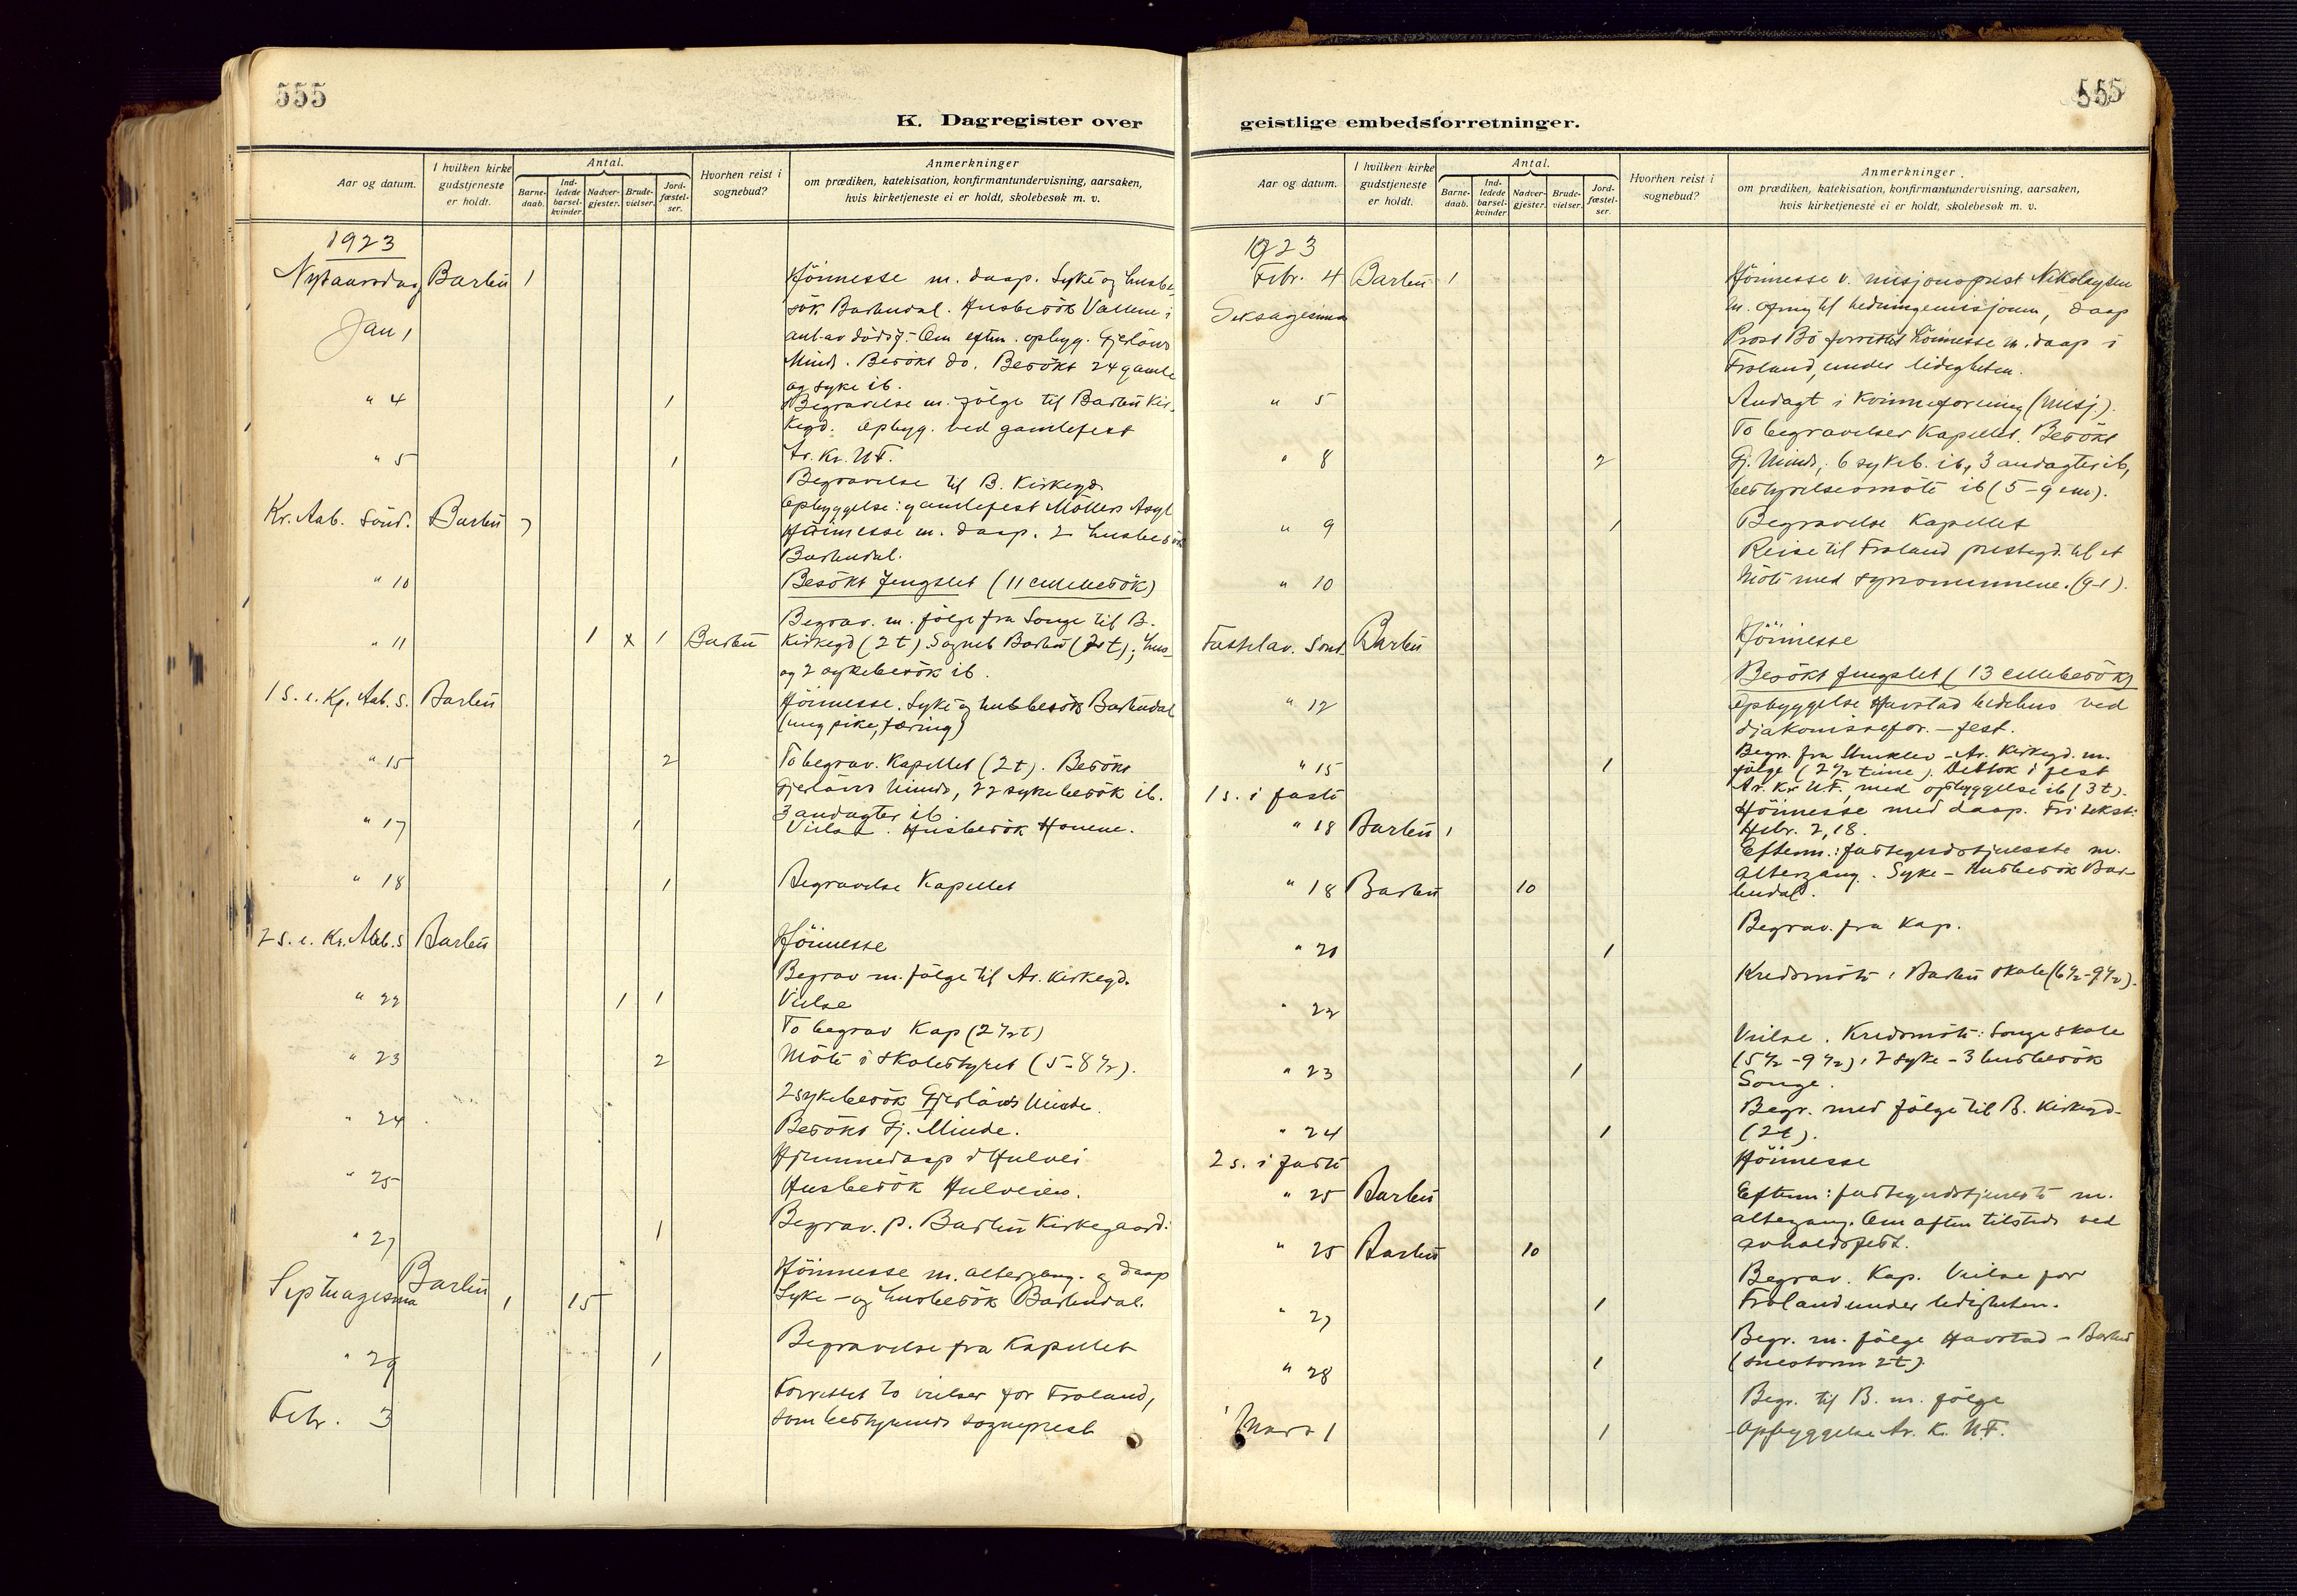 555
K. Dagregister over
Aar og datum.
I hvilken kirke gudstjeneste er holdt.
Antal.
Barne-daab.
Ind-ledede barsel-kvinder.
Nadver-gjester.
Brude-vielser.
Jord-fæstel-ser.
Hvorhen reist i sognebud?
Anmerkninger
om prædiken, katekisation, konfirmantundervisning, aarsaken,
hvis kirketjeneste ei er holdt, skolebesøk m. v.
1923
Nytaarsdag Barbu 1 Höimesse m. daap. Syke og husbe
Jan 1 sök Barbudal. Husbesök
Minde. Besökt do. Besökt 24 gamle
og syke ib.
" 4 1 Begravelse m. fölge til Barbu Kir-
kegd. Opbyg. ved gamlefest
" 5 1 Ar. Kr. U.F.
Begravelse til B. Kirkegd.
Opbyggelse: gamlefest Möllers Asyl
Kr. Aab. Sönd. Barbu 7 Höimesse m. daap. 2 husbesök
Barbudal.
" 10 Besökt fengslet (11 cellebesök)
Begrav. m. fölge fra Songe til B.
" 11 1 x 1 Barbu Kirkegd (2 t) Sogneb Barbu
og 2 sykebesök ib.
1 S. e. Kr. Aab. S. Barbu Höimesse. Syke og husbesök Barbudal
(ung pike, tæring)
" 15 2 To begrav. Kapellet (2 t). Besökt
Gjerlöws Minde, 22 sykebesök ib.
3 andagter ib.
" 17 1 Vielse. Husbesök
" 18 1 Begravelse Kapellet
2 S. e. Kr. Aab. S Barbu Höimesse
Begrav m. fölge til Ar. Kirkegd.
" 22 1 1 Vielse
To begrav Kap (2 1/2 t)
" 23 2 Möte i skolestyret (5-8 1/2).
2 sykebesök Gjerlöws Minde.
" 24 Besökt Gj. Minde.
Hjemmedaap i Hulvei
" 25 Husbesök Hulveien.
" 27 1 Begrav. p. Barbu Kirkegaard.
Septuagesima Barbu 1 15 Höimesse m. altergang. og daap
Syke- og husbesök Barbudal.
" 29 1 Begravelse fra Kapellet
Febr. 3 Forrettet to vielser for Froland,
som bestyrende sogneprest
555
geistlige embedsforretninger.
Aar og datum.
I hvilken kirke gudstjeneste er holdt.
Antal.
Barne-daab.
Ind-ledede barsel-kvinder
Nadver-gjester.
Brude-vielser.
Jord-fæstel-ser.
Hvorhen reist i sognebud?
Anmerkninger.
om prædiken, katekisation, konfirmantundervisning, aarsaken,
hvis kirketjeneste ei er holdt, skolebesøk m. v.
1923
Febr. 4 Barbu 1 Höimesse v. misjonsprest Nikolaysen
Seksagesima m. ofring til hedningemisjonen, daap
Prost Bö forrettet höimesse m. daap i
Froland, under ledigheten.
" 5 Andagt i Kvinneforening (misj.).
To begravelser Kapellet. Besökt
" 8 2 Gj. Minde, 6 sykeb. ib, 3 andagter ib,
bestyrelsesmöte ib (5-9 em).
" 9 1 Begravelse Kapellet
Reise til Froland prestegd. til et
" 10 Möte med synsmennene. (9-1).
Fastelav. Sönd. Barbu Höimesse
Besökt fengslet (13 cellebesök)
" 12 Opbyggelse Havstad bedehus ved
djakonissefor.-fest.
Begr. fra Munklev - Ar. Kirkegd. m.
" 15 1 fölge (2 1/2 time). Deltok i fest
1 s. i faste Ar. Kr. U.F., med opbyggelse ib (3 t).
Höimesse med daap. Fri tekst:
" 18 Barbu 1 Hebr. 2,18.
Efterm.: fastegudstjeneste m.
" 18 Barbu 10 altergang. Syke- husbesök Bar-
budal.
Begrav. fra Kap.
" 20 1
Kredsmöte i Barbu skole (6 1/2-9 1/2).
" 22
Vielse. Kredsmöte: Songe skole
" 23 1 (5 1/2-9 1/2), 2 syke- 3 husbesök
Songe.
Begr. med fölge til B. Kirkegd.
" 24 1 (2 t).
2 s. i faste Höimesse
" 25 Barbu Efterm: fastegudstjeneste m.
altergang. Om aften tilstede ved
" 25 Barbu 10 avholdsfest.
Begrav. Kap. Vielse for
" 27 1 Froland under ledigheten.
Begr. m. fölge Havstad - Barbu
" 28 1 (snestorm 2 t).
Begr. til B. m. fölge
Mars 1 1 Opbyggelse Ar. K. U.F.